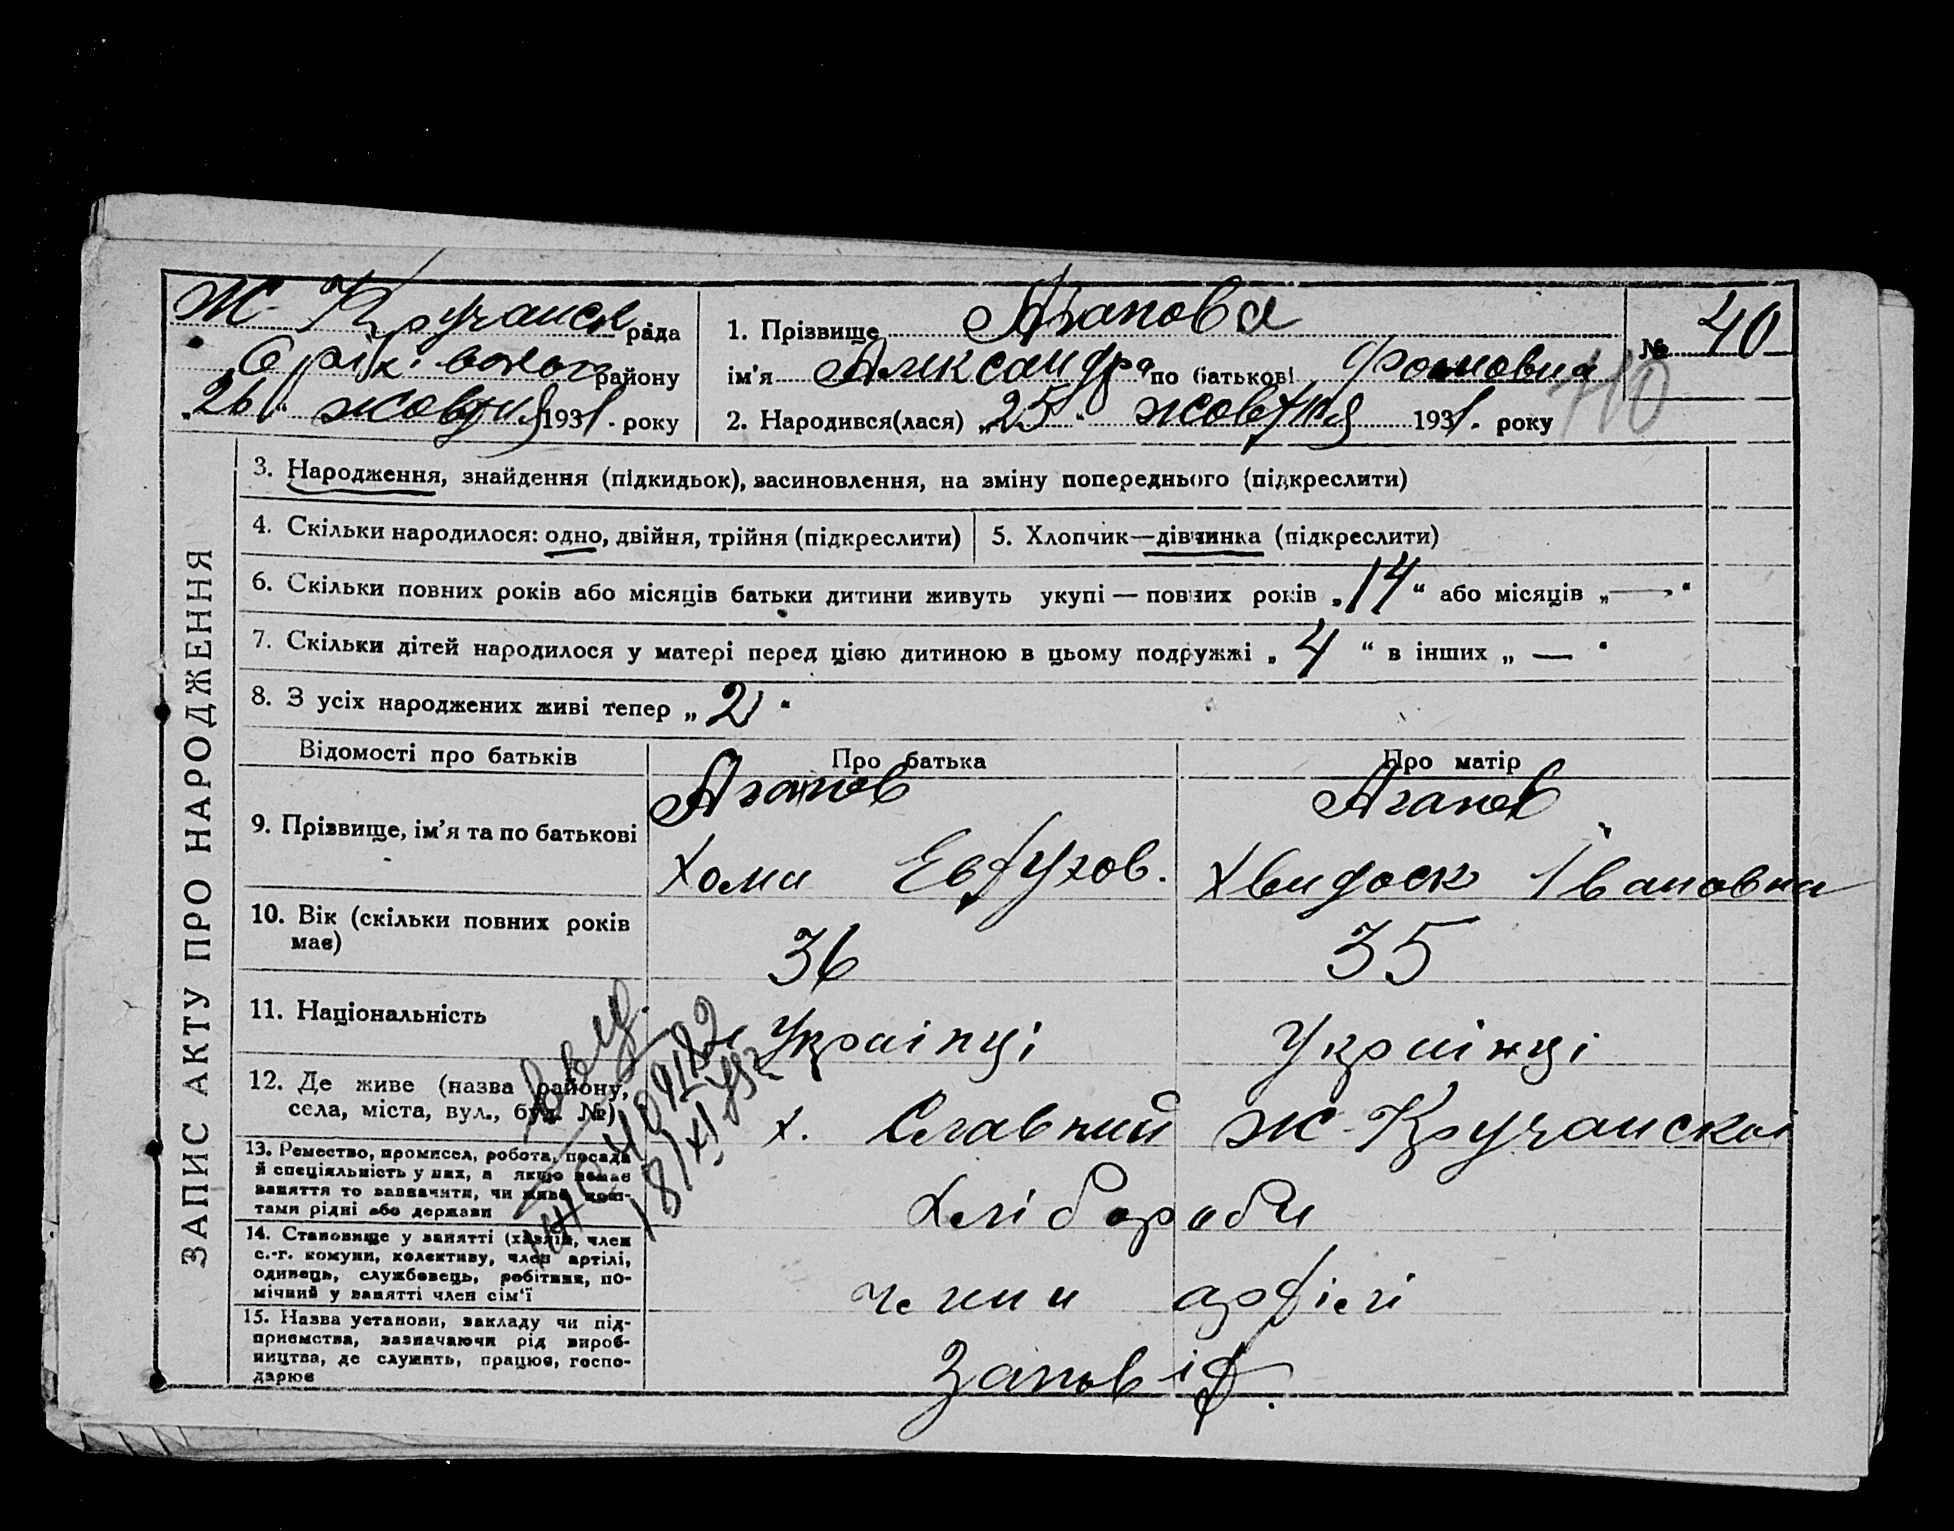 Ж-Кручанск рада
району
„26“ жовтня 1931. року
1. Прізвище Агапова
ім'я Александра по батькові Фомовна
2. Народився(лася) „25“ жовтня 1931. року
№ 40
110
ЗАПИС АКТУ ПРО НАРОДЖЕННЯ
3. Народження, знайдення (підкидьок), васиновлення, на зміну попереднього (підкреслити)
4. Скільки народилося: одно, двійня, трійня (підкреслити)
5. Хлопчик—дівчинка (підкреслити)
6. Скільки повних років або місяців батьки дитини живуть укупі — повних років „14“ або місяців „—“
7. Скільки дітей народилося у матері перед цією дитиною в цьому подружжі „4“ в інших „—“
8. З усіх народжених живі тепер „2“
Відомості про батьків
Про батька
Про матір
9. Прізвище, ім'я та по батькові
Агапов
Хома Евтухов.
Агапов
Хвидоск Івановна
10. Вік (скільки повних років має)
36
35
11. Національність
Українці
Українці
12. Де живе (назва району,
села, міста, вул., буд. №)
х. Славний Ж-Кручанскої
13. Ремество, промисел, робота, посада
й спеціяльність у них, а якщо немає
заняття то зазначити, чи живе кош-
тами рідні або держави
Хлібороби
14. Становище у занятті (хазяїн, член
с.-г. комуни, колективу, член артілі,
одинець, службовець, робітник, по-
мічний у занятті член сім'ї
члени артілі
15. Назва установи, закладу чи під-
приємства, зазначаючи рід вироб-
ництва, де служить, працює, госпо-
дарює
Заповіт.